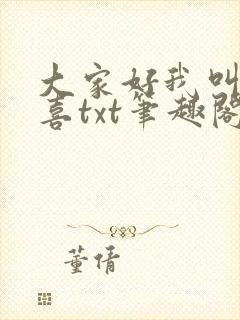 大家好我叫
喜txt笔趣阁
董倩